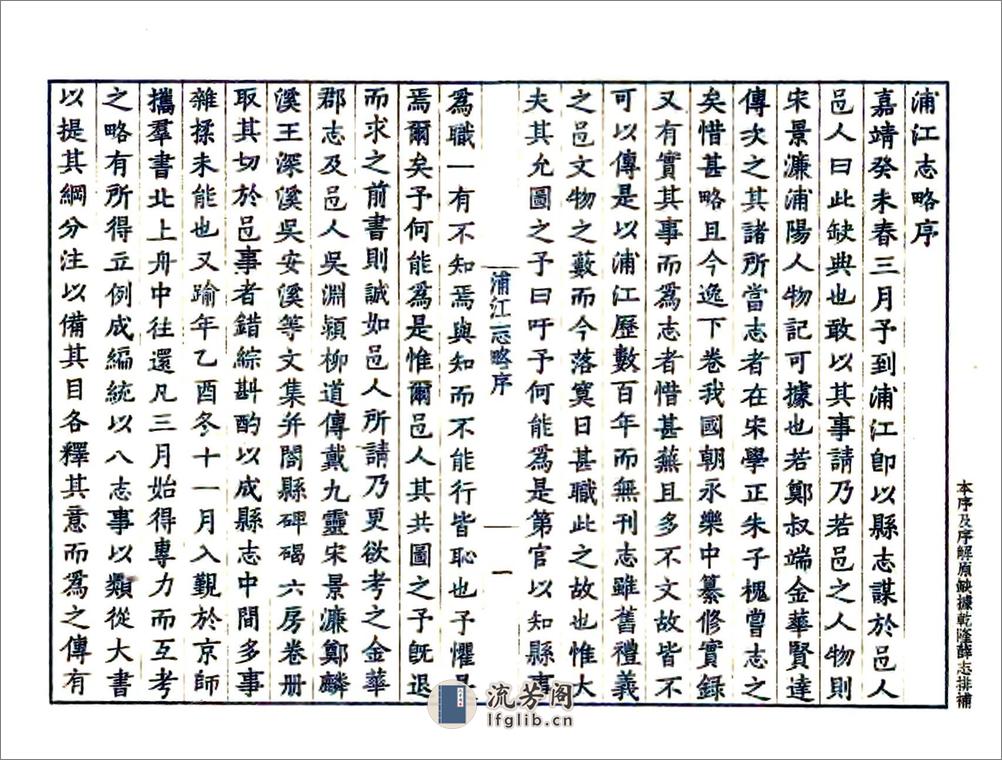 本序及序解原缺據乾隆薛志排補
浦江志略序
嘉靖癸未春三月予到浦江卽以縣志謀於邑人
邑人曰此缺典也敢以其事請乃若邑之人物則
宋景濂浦陽人物記可據也若鄭叔端金華賢達
傳次之其諸所當志者在宋學正朱子槐嘗志之
矣惜甚略且今逸下卷我國朝永樂中纂修實錄
又有實其事而爲志者惜甚蕪且多不文故皆不
可以傳是以浦江歷數百年而無刊志雖舊禮義
之邑文物之藪而今落寞日甚職此之故也惟大
夫其允圖之予曰吁予何能爲是第官以知縣事
浦江志略序
一
爲職一有不知焉與知而不能行皆恥也予懼
焉爾矣予何能爲是惟爾邑人其共圖之予旣退
而求之前書則誠如邑人所請乃更欲考之金華
郡志及邑人吳淵穎柳道傳戴九靈宋景濂鄭麟
溪王深溪吳安溪等文集并閤縣碑碣六房卷册
取其切於邑事者錯綜斟酌以成縣志中間多事
雜揉未能也又踰年乙酉冬十一月入覲於京師
攜羣書北上舟中往還凡三月始得專力而互考
之略有所得立例成編統以八志事以類從大書
以提其綱分注以備其目各釋其意而爲之傳有
流芳阁
lfglib.cn